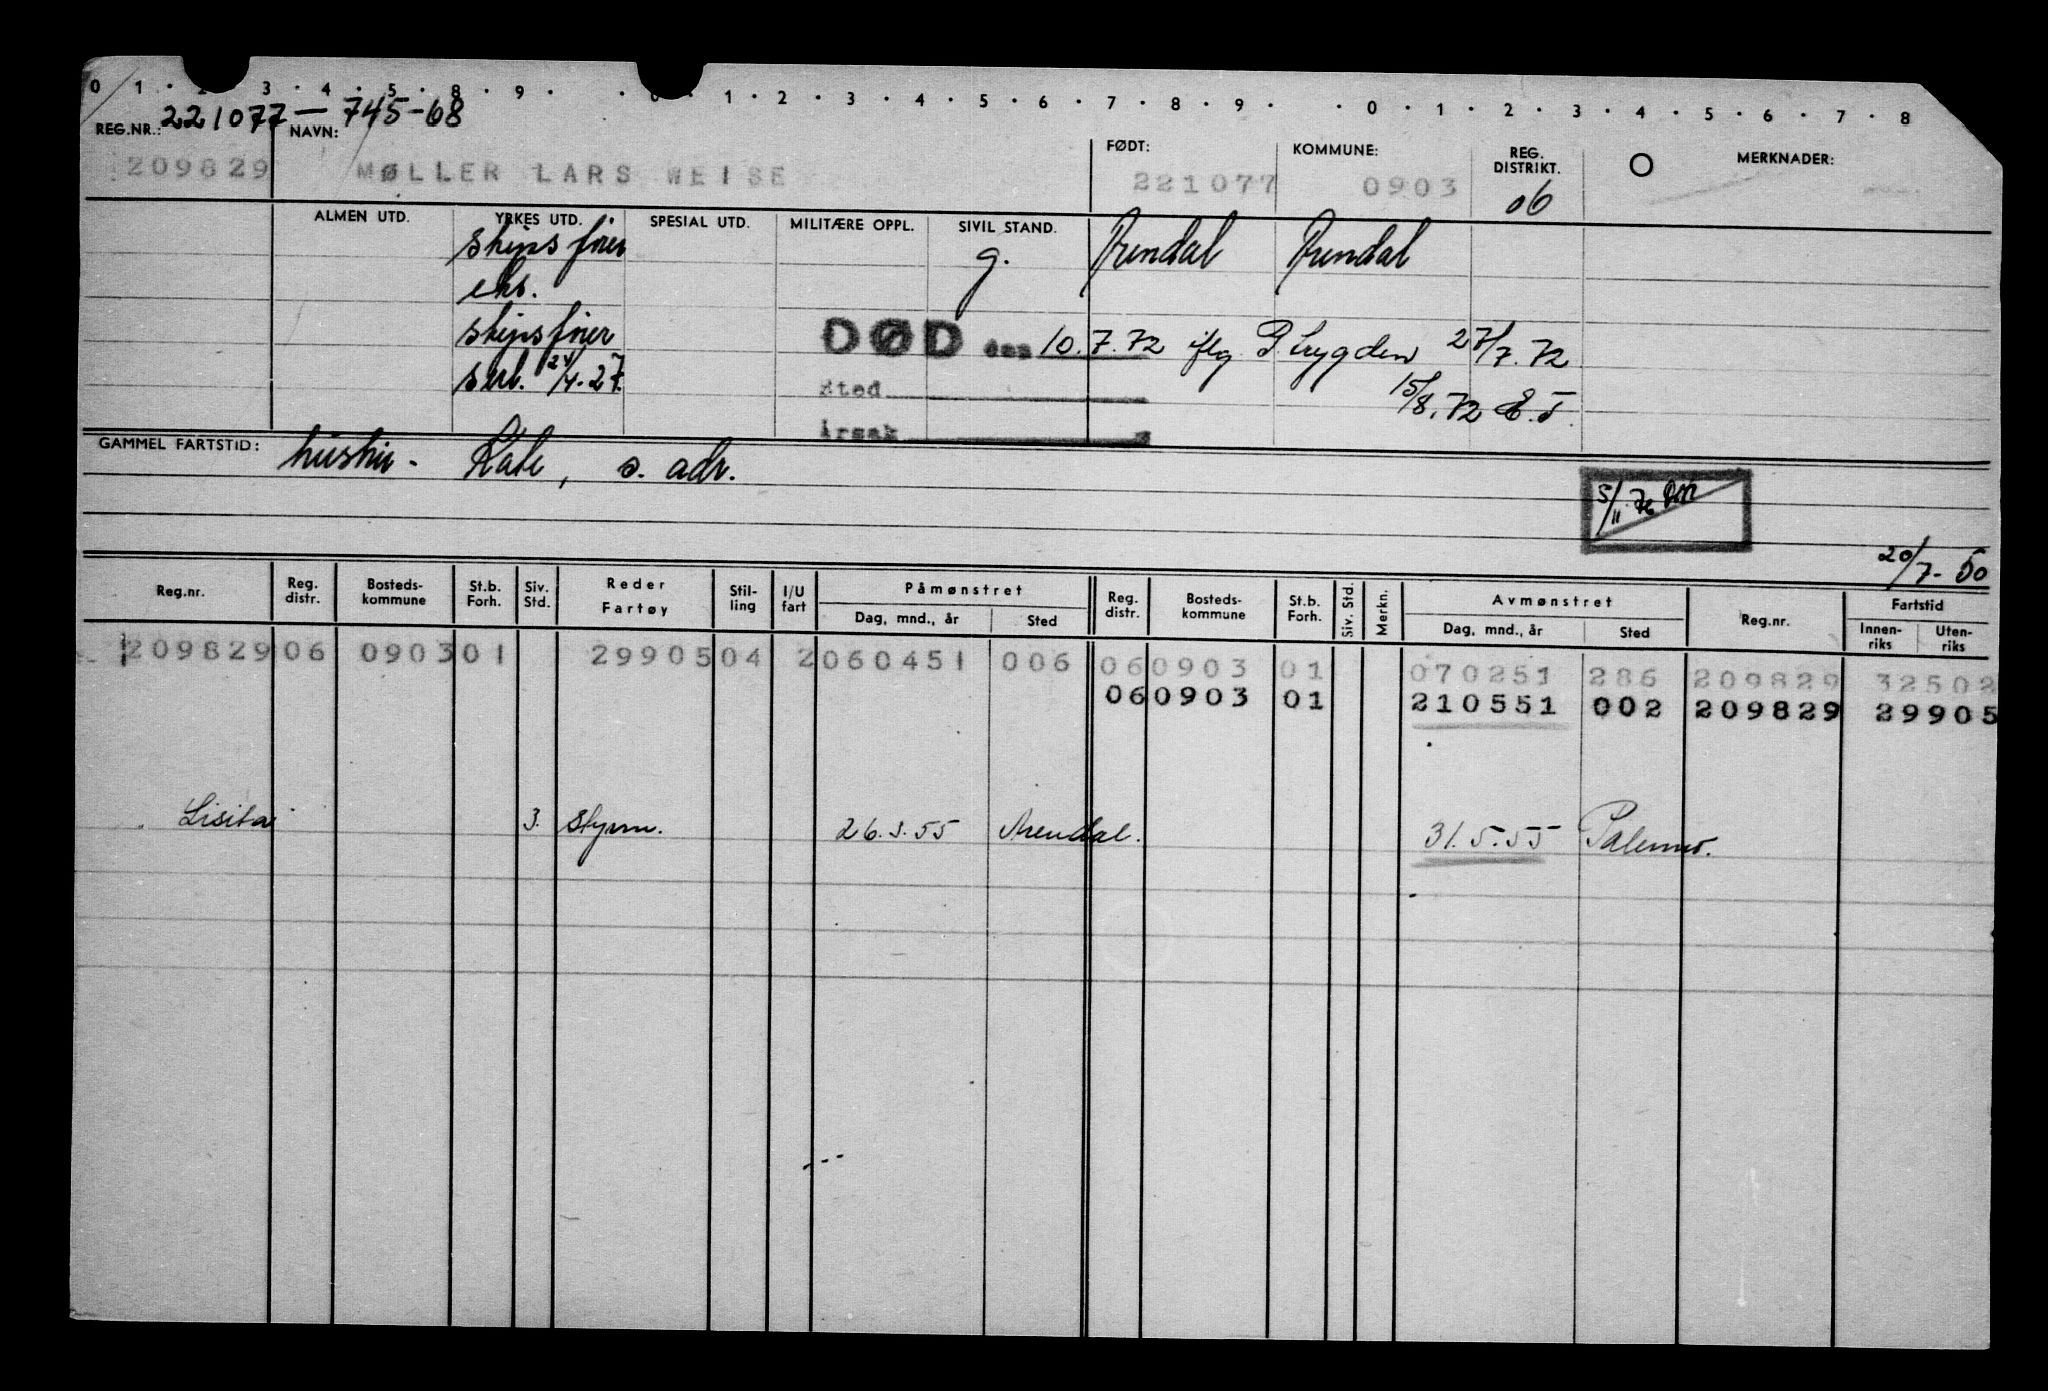 0 1 · 2 3 · 4 · 5 · 8 · 9 · · 0 · 1 · 2 · 3 · 4 · 5 · 6 · 7 · 8 · 9 · · 0 · 1 · 2 · 3 · 4 · 5 · 6 · 7 · 8
221077 — 745-68
REG.NR.: NAVN: FØDT: KOMMUNE: REG. DISTRIKT. O MERKNADER:
209829 MØLLER LARS WEISE 221077 0903 06
ALMEN UTD. YRKES UTD. SPESIAL UTD. MILITÆRE OPPL. SIVIL STAND.
skipsfører g. Arendal Arendal
eks.
skipsfører DØD den 10.7.72 iflg. P. trygden 27/7.72
sert. 24/4.27. Sted 15/8.72 E.T.
Årsak
GAMMEL FARTSTID: hustru - Kate, s. adr.
5/11.76
20/7-50
Reg.nr. Reg. distr. Bosteds-kommune St.b. Forh. Siv. Std. Reder Fartøy Stil-ling I/U fart Påmønstret Dag, mnd., år Sted Reg. distr. Bosteds-kommune St.b. Forh. Siv. Std. Merkn. Avmønstret Dag, mnd., år Sted Reg.nr. Fartstid Innen-riks Uten-riks
209829 06 0903 01 29905 04 2 060451 006 06 0903 01 070251 286 209829 32502
06 0903 01 210551 002 209829 29905
Lisita 3. styrm. 26.3.55 Arendal. 31.5.55 Palermo.